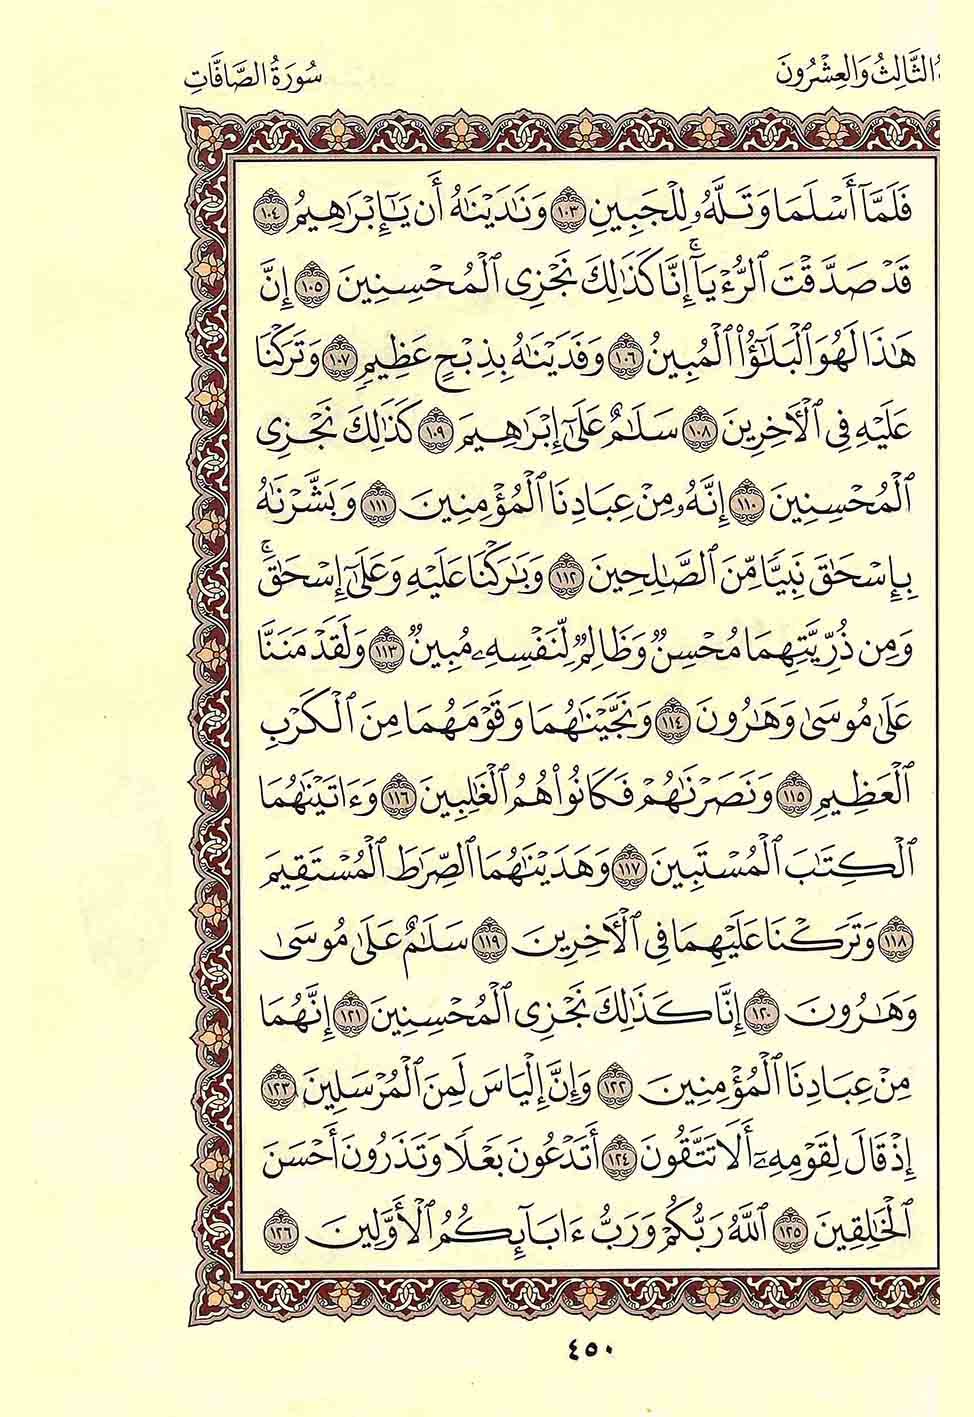 الثَّالِثُ وَالعِشْرُونَ
سُورَةُ الصَّافَّاتِ
فَلَمَّآ أَسْلَمَا وَتَلَّهُۥ لِلْجَبِينِ ١٠٣ وَنَٰدَيْنَٰهُ أَن يَٰٓإِبْرَٰهِيمُ ١٠٤
قَدْ صَدَّقْتَ ٱلرُّءْيَآ ۚ إِنَّا كَذَٰلِكَ نَجْزِى ٱلْمُحْسِنِينَ ١٠٥ إِنَّ
هَٰذَا لَهُوَ ٱلْبَلَٰٓؤُا۟ ٱلْمُبِينُ ١٠٦ وَفَدَيْنَٰهُ بِذِبْحٍ عَظِيمٍ ١٠٧ وَتَرَكْنَا
عَلَيْهِ فِى ٱلْأَخِرِينَ ١٠٨ سَلَٰمٌ عَلَىٰٓ إِبْرَٰهِيمَ ١٠٩ كَذَٰلِكَ نَجْزِى
ٱلْمُحْسِنِينَ ١١٠ إِنَّهُۥ مِنْ عِبَادِنَا ٱلْمُؤْمِنِينَ ١١١ وَبَشَّرْنَٰهُ
بِإِسْحَٰقَ نَبِيًّا مِّنَ ٱلصَّٰلِحِينَ ١١٢ وَبَٰرَكْنَا عَلَيْهِ وَعَلَىٰٓ إِسْحَٰقَ ۚ
وَمِن ذُرِّيَّتِهِمَا مُحْسِنٌ وَظَالِمٌ لِّنَفْسِهِۦ مُبِينٌ ١١٣ وَلَقَدْ مَنَنَّا
عَلَىٰ مُوسَىٰ وَهَٰرُونَ ١١٤ وَنَجَّيْنَٰهُمَا وَقَوْمَهُمَا مِنَ ٱلْكَرْبِ
ٱلْعَظِيمِ ١١٥ وَنَصَرْنَٰهُمْ فَكَانُوا۟ هُمُ ٱلْغَٰلِبِينَ ١١٦ وَءَاتَيْنَٰهُمَا
ٱلْكِتَٰبَ ٱلْمُسْتَبِينَ ١١٧ وَهَدَيْنَٰهُمَا ٱلصِّرَٰطَ ٱلْمُسْتَقِيمَ
١١٨ وَتَرَكْنَا عَلَيْهِمَا فِى ٱلْأَخِرِينَ ١١٩ سَلَٰمٌ عَلَىٰ مُوسَىٰ
وَهَٰرُونَ ١٢٠ إِنَّا كَذَٰلِكَ نَجْزِى ٱلْمُحْسِنِينَ ١٢١ إِنَّهُمَا
مِنْ عِبَادِنَا ٱلْمُؤْمِنِينَ ١٢٢ وَإِنَّ إِلْيَاسَ لَمِنَ ٱلْمُرْسَلِينَ ١٢٣
إِذْ قَالَ لِقَوْمِهِۦٓ أَلَا تَتَّقُونَ ١٢٤ أَتَدْعُونَ بَعْلًا وَتَذَرُونَ أَحْسَنَ
ٱلْخَٰلِقِينَ ١٢٥ ٱللَّهُ رَبُّكُمْ وَرَبُّ ءَابَآئِكُمُ ٱلْأَوَّلِينَ ١٢٦
٤٥٠